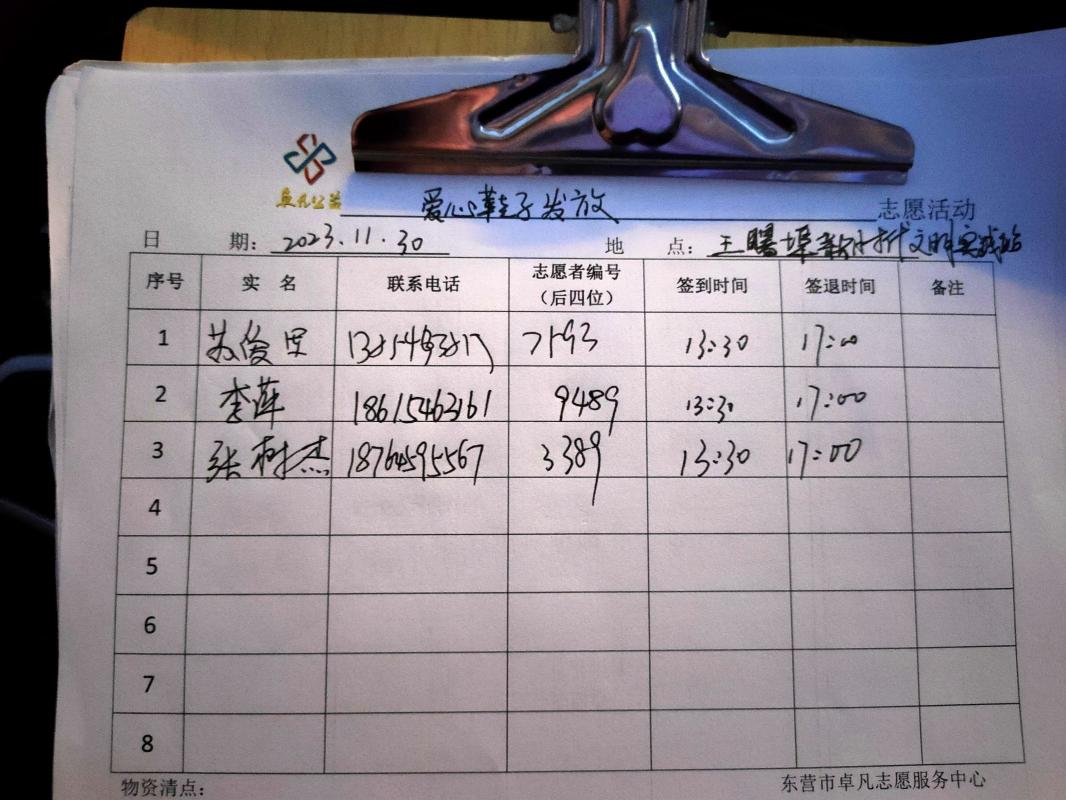 卓凡公益 爱心鞋子发放 志愿活动
日 期: 2023.11.30 地 点:
序号 实 名 联系电话 志愿者编号（后四位） 签到时间 签退时间 备注
1 苏俊 7193 13:30 17:00
2 李萍 18615463161 9489 13:30 17:00
3 张树杰 18764595567 3389 13:30 17:00
4
5
6
7
8
物资清点： 东营市卓凡志愿服务中心